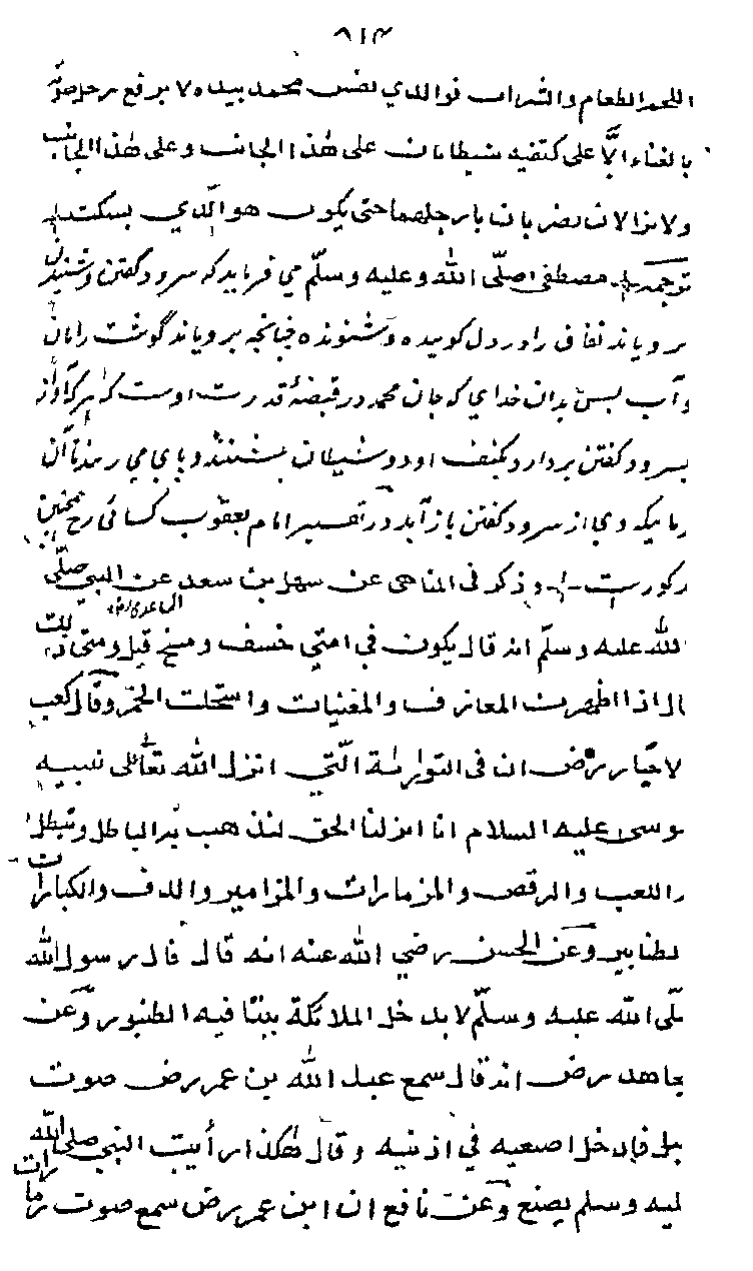 ٨١٣
اللحم الطعام والشراب فوالذي نفس محمد بيده لا يرفع رجل صوته
بالغناء الّا على كتفيه شيطانان على هٰذا الجانب وعلى هٰذا الجانب
ولا يزالان يضربان بارجلهما حتى يكون هو الّذي يسكت
ترجمه مصطفى صلّى الله وعليه وسلّم مي فرمايد كه سرود گفتن و شنيدن
بروياند نفاق را در دل گوينده و شنونده چنانچه بروياند گوشت را نان
وآب پس بدان خداي كه جان محمد در قبضهٔ قدرت اوست كه هركه آواز
بسرود گفتن بردارد بكتف او دو شيطان بنشينند و پاي مي زنند تا آن
زمانيكه وي از سرود گفتن باز آيد در تفسير امام يعقوب كسائي رح همچنين
مذكورست وذكر في المناهى عن سهل بن سعد الساعدي رض عن النبي صلّى
الله عليه وسلّم انه قال يكون في امتي خسف ومسخ قيل ومتى ذلك
قال اذا اظهرت المعازف والمغنيات واستحلت الخمر وقال كعب
الاحبار رض ان في التوارىٰة الّتي انزل الله تعالى نبيه
موسى عليه السلام انا انزلنا الحق لنذهب به الباطل ونبطل
به اللعب والرقص والمزمارات والمزامير والدف والكبارات
والطنابير وعن الحسن رضي الله عنه انه قال قال رسول الله
صلّى الله عليه وسلّم لا يدخل الملائكة بيتا فيه الطنبور وعن
مجاهد رض انه قال سمع عبد الله بن عمر رض صوت
طبل فادخل اصبعيه في اذنيه وقال هٰكذا رأيت النبي صلى الله
عليه وسلم يصنع وعن نافع ان ابن عمر رض سمع صوت زمارات